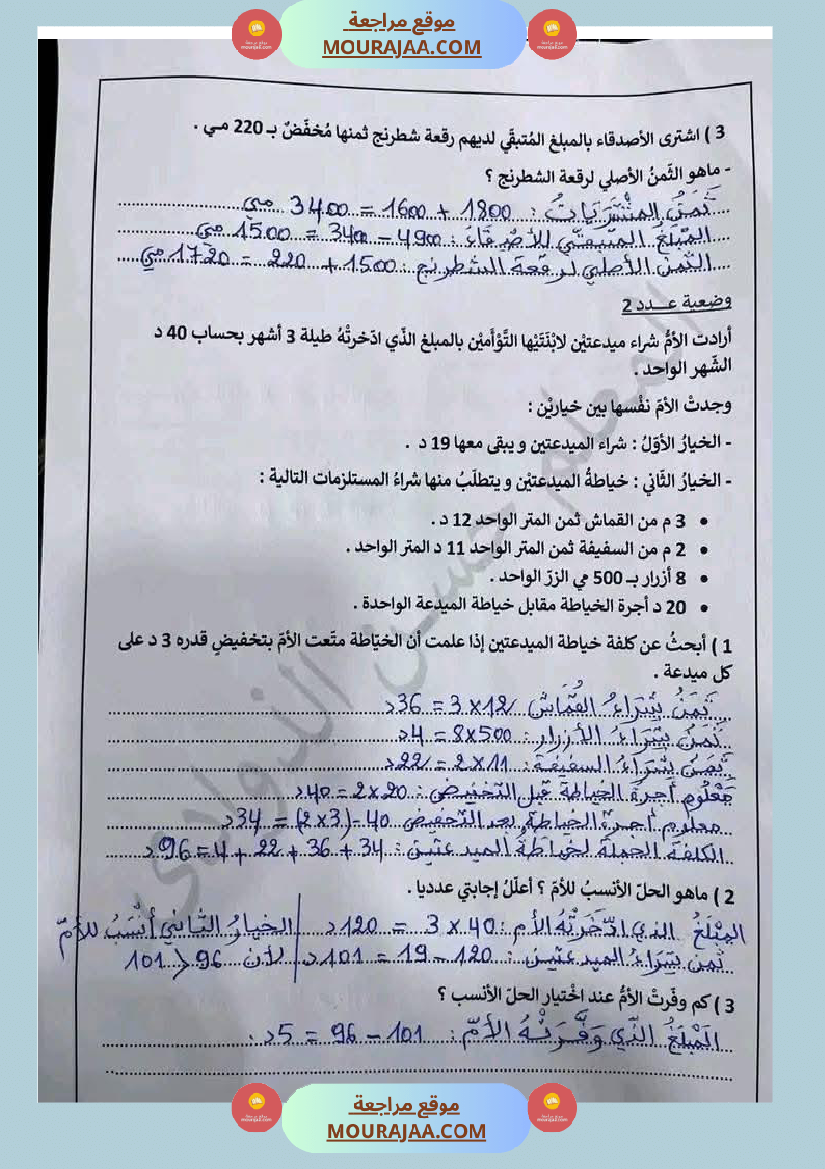 موقع مراجعة
MOURAJAA.COM
3 ) اشترى الأصدقاء بالمبلغ المُتبقّي لديهم رقعة شطرنج ثمنها مُخفَضٌ بـ 220 مـي .
- ماهو الثّمنُ الأصلي لرقعة الشطرنج ؟
ثَمَنُ المُشْتَرَيَاتُ : 1800 + 1600 = 3400 مي
المَبْلَغُ المتبقّي للأصْدِقَاءَ : 4900 - 3400 = 1500 مي
الثمنُ الأصلي لرقعة الشطرنج : 1500 + 220 = 1720 مي
وضعية عـــدد 2
أرادت الأمُّ شراء ميدعتيْن لابْنَتَيْها التَّوْأَميْن بالمبلغ الذّي ادّخرتْهُ طيلة 3 أشهر بحساب 40 د
الشّهر الواحد .
وجدتْ الأمّ نفْسها بين خياريْن :
- الخيارُ الأوّلُ : شراء الميدعتين و يبقى معها 19 د .
- الخيارُ الثّاني : خياطةُ الميدعتيْن و يتطلّبُ منها شراءُ المستلزمات التالية :
• 3 م من القماش ثمن المتر الواحد 12 د .
• 2 م من السفيفة ثمن المتر الواحد 11 د المتر الواحد .
• 8 أزرار بـ 500 مي الزرّ الواحد .
• 20 د أجرة الخياطة مقابل خياطة الميدعة الواحدة .
1 ) أبحثُ عن كلفة خياطة الميدعتين إذا علمت أن الخيّاطة متّعت الأمّ بتخفيضٍ قدره 3 د على
كل ميدعة .
ثَمَنُ شِرَاءُ القُمَاشُ 12 × 3 = 36 د
ثَمَنُ شِرَاءُ الأزرار : 500 × 8 = 4 د
ثَمَنُ شِرَاءُ السفيفة : 11 × 2 = 22 د
مَعْلُوم أجرةُ الخياطة قبل التخفيض : 20 × 2 = 40 د
معلوم أجرة الخياطة بعد التخفيض 40 - (3 × 2) = 34 د
الكلفة الجملة لخياطة الميدعتين : 34 + 36 + 22 + 4 = 96 د
2 ) ماهو الحلّ الأنسبُ للأمّ ؟ أعلّلُ إجابتي عدديا .
المَبْلَغُ الذي ادّخَرَتْهُ الأم : 40 × 3 = 120 د | الخيارُ الثّاني أنْسَبُ للأمّ
ثمن شِرَاءُ الميدعتين : 120 - 19 = 101 د | لأن 96 < 101
3 ) كم وفّرتْ الأمُّ عند اخْتيار الحلّ الأنسب ؟
المَبْلَغُ الذّي وَفَّرَتْهُ الأمّ : 101 - 96 = 5 د .
موقع مراجعة
MOURAJAA.COM